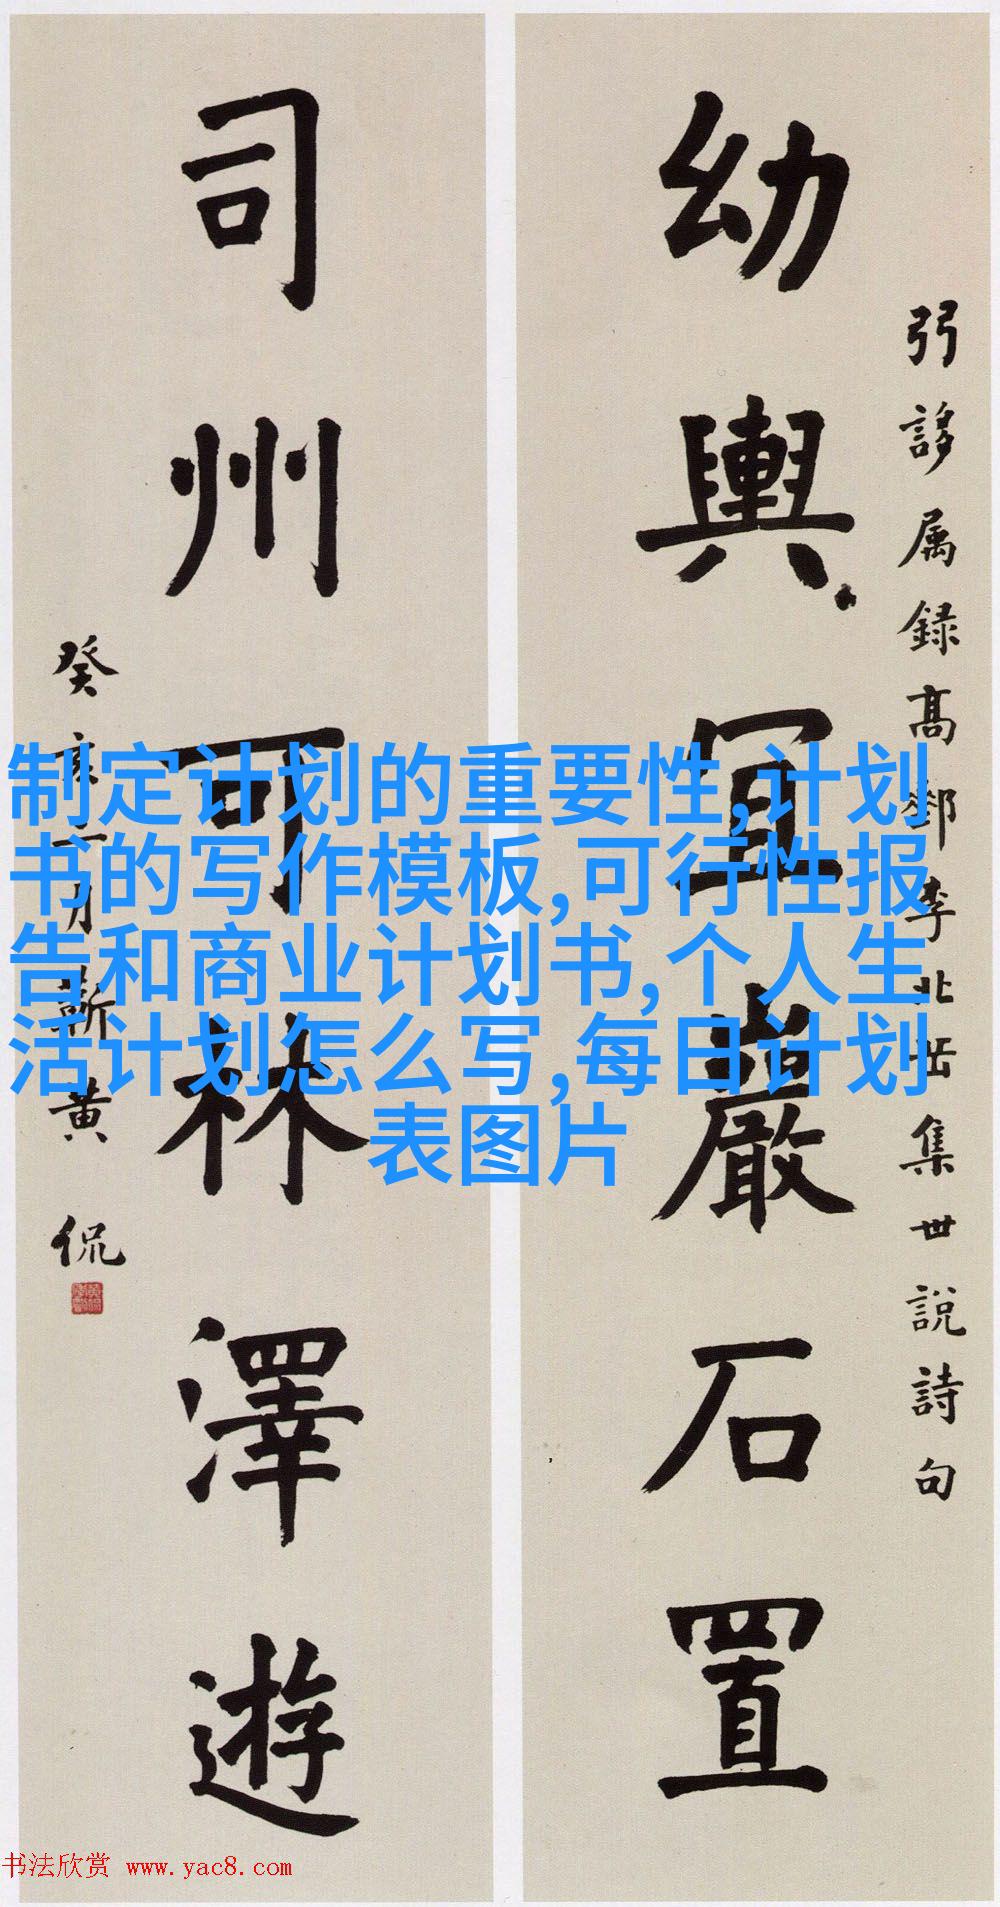 弜誃属録高郵李北岳集世説詩句
幼輿宜巖石置
司州可林澤遊
癸亥二月蘄黄侃
制定计划的重要性,计划
书的写作模板,可行性报
告和商业计划书,个人生
活计划怎么写,每日计划
表图片
书法欣赏 www.yac8.com